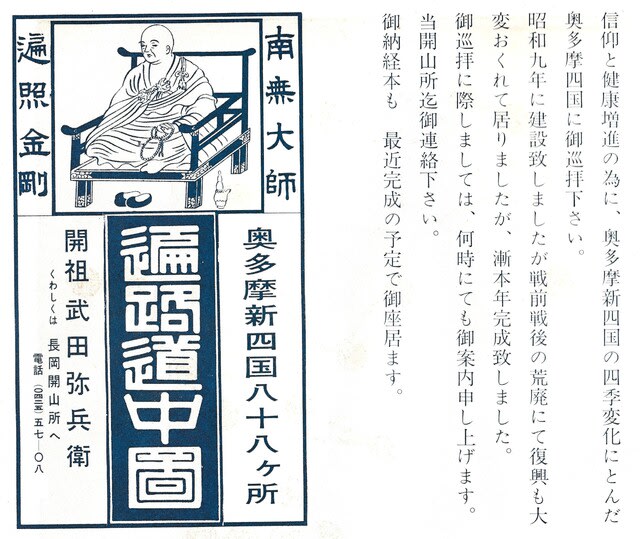 信仰と健康増進の為に、奥多摩新四国の四季変化にとんだ
奥多摩四国に御巡拝下さい。
昭和九年に建設致しましたが戦前戦後の荒廃にて復興も大
変おくれて居りましたが、漸本年完成致しました。
御巡拝に際しましては、何時にても御案内申し上げます。
当開山所迄御連絡下さい。
御納経本も　最近完成の予定で御座居ます。
南無大師
遍照金剛
奥多摩新四国八十八ヶ所
遍路道中図
開祖 武田弥兵衛
くわしくは 長岡開山所へ
電話（〇四二五）五七―〇八